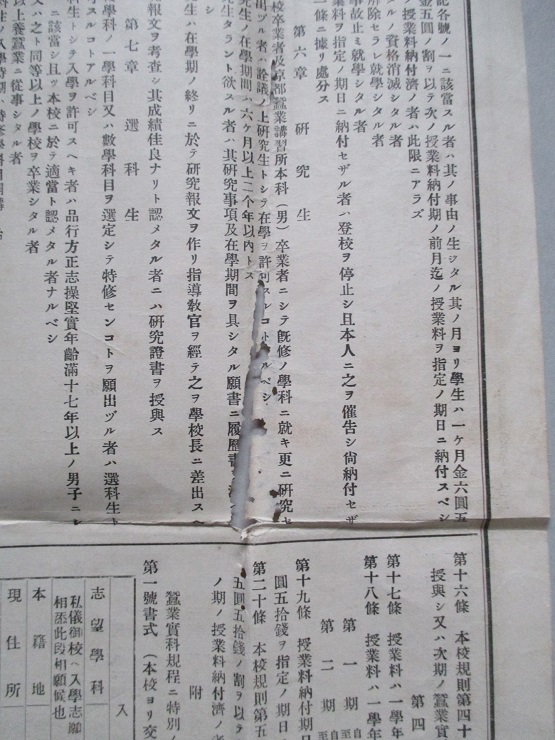 記各號ノ一ニ該當スル者ハ其ノ事由ノ生ジタル其ノ月ヨリ學生ハ一ケ月金六圓五
金五圓ノ割ヲ以テ次ノ授業料納付期ノ前月迄ノ授業料ヲ指定ノ期日ニ納付スベシ
ノ授業料納付濟ノ者ハ此限ニアラズ
ル資格消滅シタル者
除セラレ就學シタル者
事故止ミ就學シタル者
業料ヲ指定ノ期日ニ納付セザル者ハ登校ヲ停止シ且本人ニ之ヲ催告シ尙納付セザ
條ニ據リ處分ス
第六章 研究生
校卒業者及京都蠶業講習所本科(男)卒業者ニシテ旣修ノ學科ニ就キ更ニ研究セ
出ヅル者ハ詮議ノ上研究生トシテ在學ヲ許可スルコトアルベシ
究生ノ在學期間ハ六ケ月以上二ケ年以内トス
究生タラント欲スル者ハ其研究事項及在學期間ヲ具シタル願書ニ履歷書
究生ハ在學期ノ終リニ於テ研究報文ヲ作リ指導敎官ヲ經テ之ヲ學校長ニ差出スヘ
報文ヲ考査シ其成績佳良ナリト認メタル者ニハ研究證書ヲ授與ス
第七章 選科生
學科ノ一學科目又ハ數學科目ヲ選定シテ特修センコトヲ願出ヅル者ハ選科生ト
スルコトアルベシ
科生トシテ入學ヲ許可スヘキ者ハ品行方正志操堅實年齡滿十七年以上ノ男子ニシ
ニ該當シ且ツ本校ニ於テ適當ト認メタル者ナルベシ
又ハ之ト同等以上ノ學校ヲ卒業シタル者
以上養蠶業ニ從事シタル者
第十六條 本校規則第四十
授與シ又ハ次期ノ蠶業實
第四
第十七條 授業料ハ一學年
第十八條 授業料ハ一學年
第一期 自
第二期 自
第十九條 授業料納付期日
圓五拾錢ヲ指定ノ期日
第二十條 本校規則第五
五圓五拾錢ノ割ヲ以テ
ノ期ノ授業料納付濟ノ者
附
蠶業實科規程ニ特別ノ
第一號書式 (本校ヨリ交
入
志望學科
私儀御校ヘ入學志願
相歪此段相願候也
本籍地
現住所